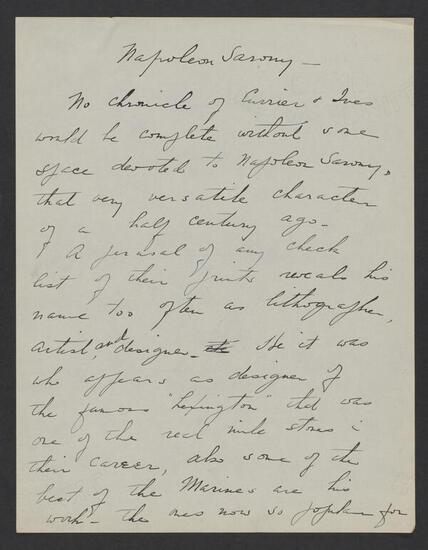 Napoleon Sarony —
No chronicle of Currier & Ives
would be complete without some
space devoted to Napoleon Sarony,
that very versatile character
of a half century ago.
¶ A perusal of any check
list of their prints reveals his
name too often as lithographer,
artist, and designer. He it was
who appears as designer of
the famous "Lexington" that was
one of the real mile stones i
their career, also some of the
best of the Marines are his
work - the ones now so popular for